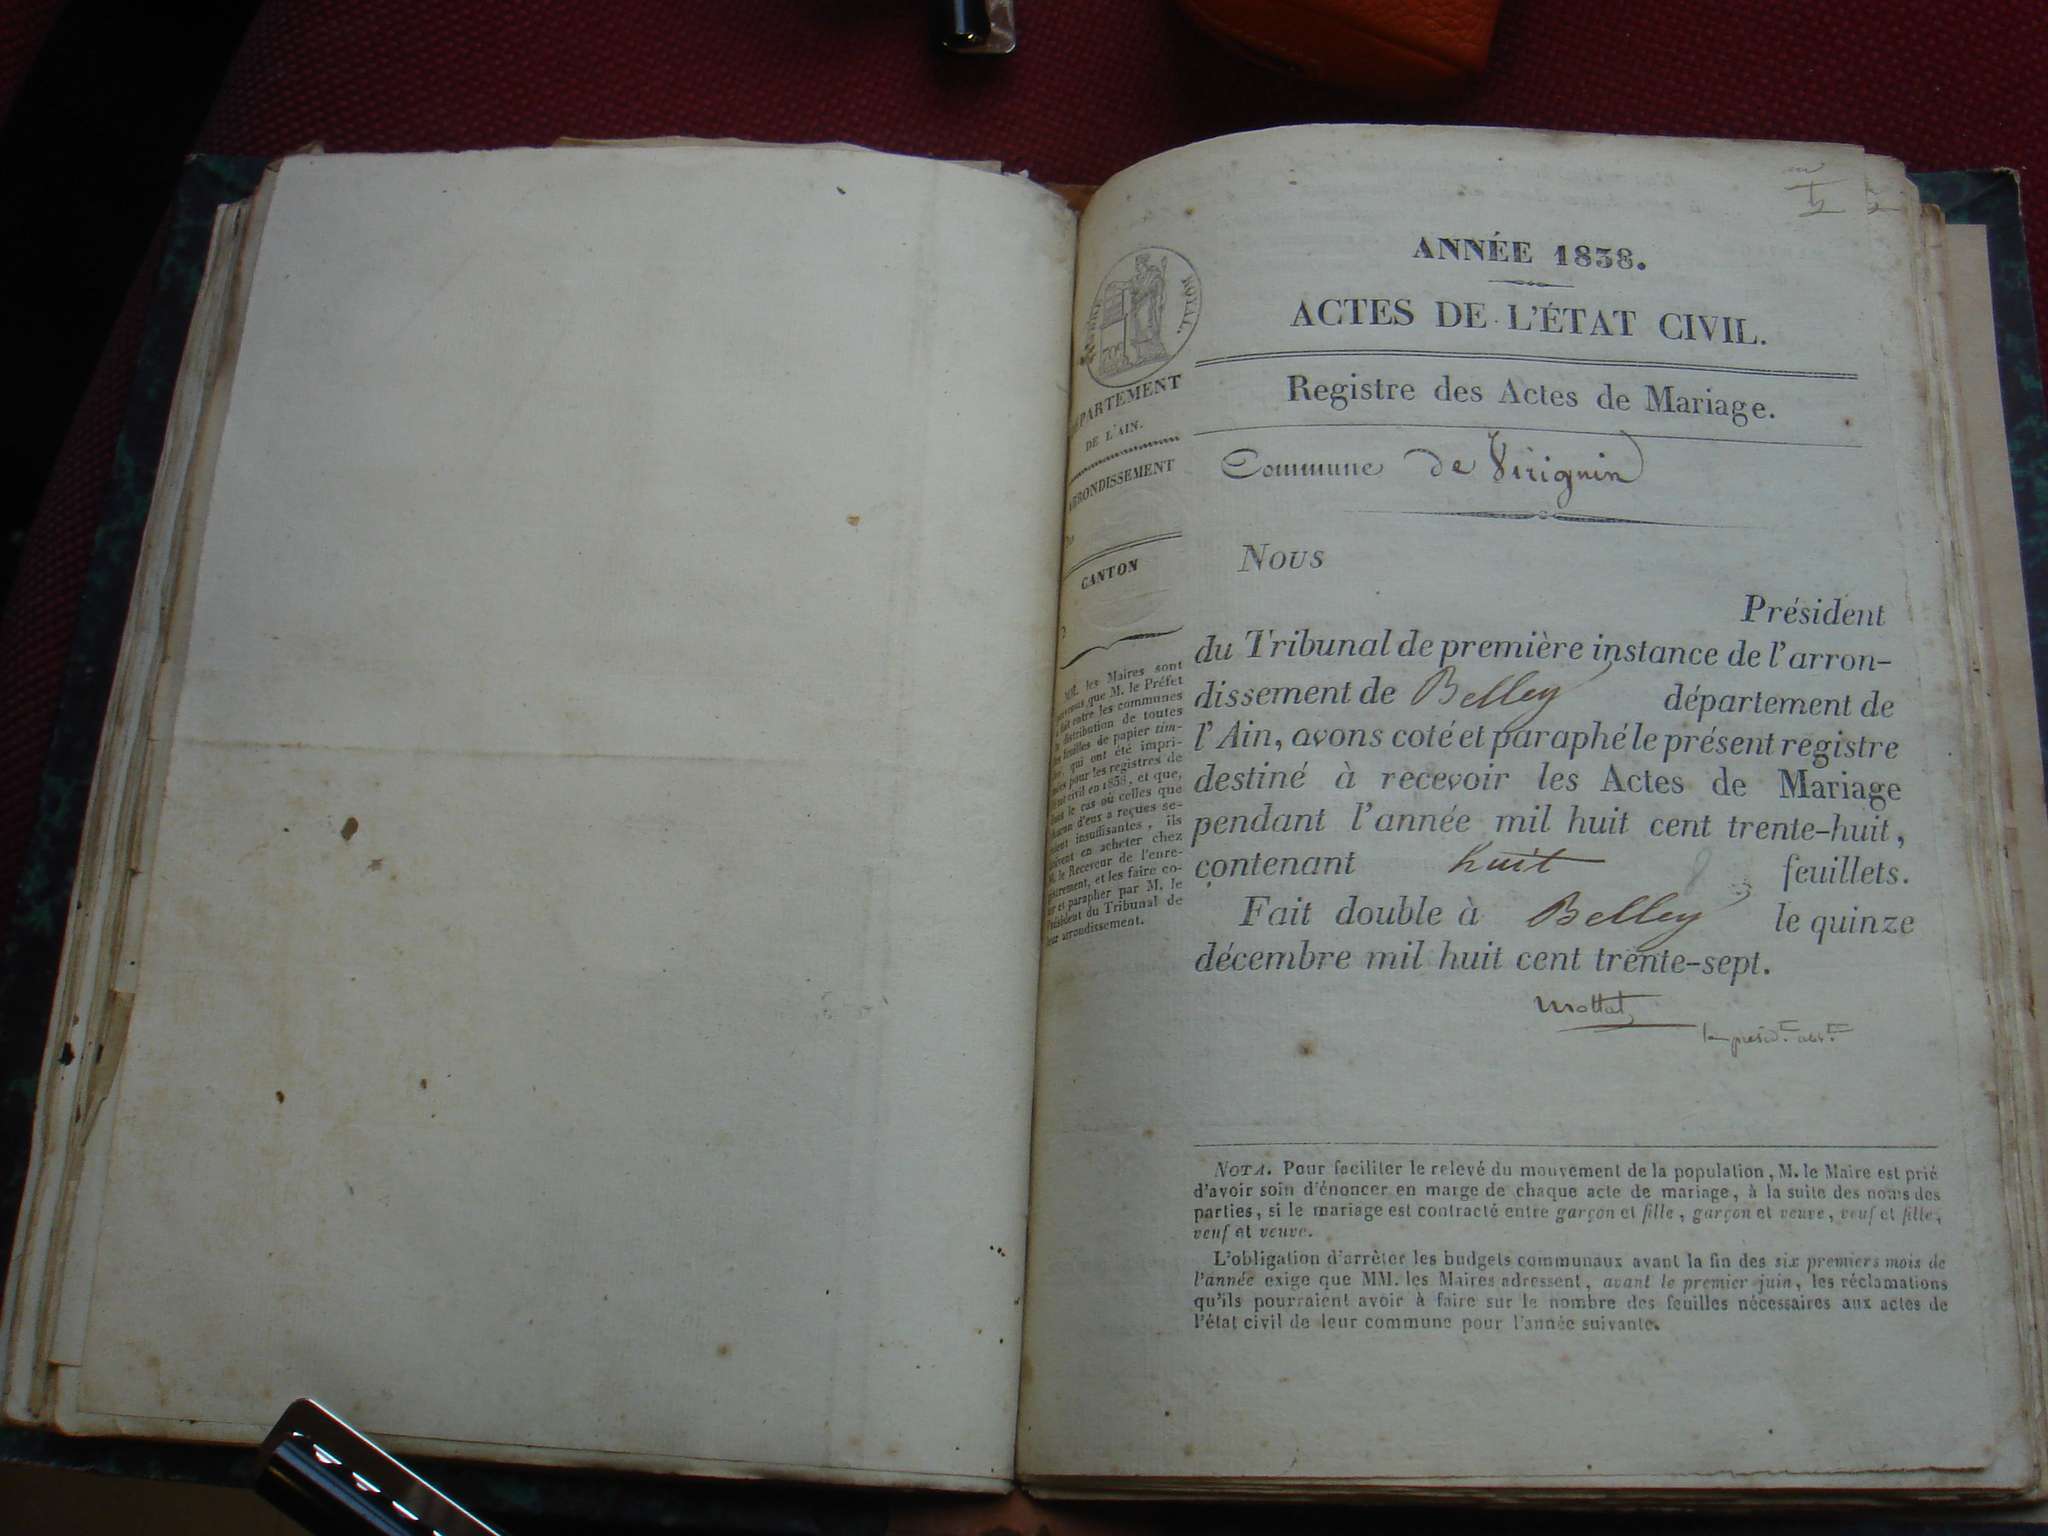 ANNÉE 1838.
ACTES DE L'ÉTAT CIVIL.
Registre des Actes de Mariage.
Commune de Virignin
Nous
Président
du Tribunal de première instance de l'arron-
dissement de Belley département de
l'Ain, avons coté et paraphé le présent registre
destiné à recevoir les Actes de Mariage
pendant l'année mil huit cent trente-huit,
contenant huit 8 feuillets.
Fait double à Belley le quinze
décembre mil huit cent trente-sept.
Mottat
NOTA. Pour faciliter le relevé du mouvement de la population, M. le Maire est prié
d'avoir soin d'énoncer en marge de chaque acte de mariage, à la suite des noms des
parties, si le mariage est contracté entre garçon et fille, garçon et veuve, veuf et fille,
veuf et veuve.
L'obligation d'arrêter les budgets communaux avant la fin des six premiers mois de
l'année exige que MM. les Maires adressent, avant le premier juin, les réclamations
qu'ils pourraient avoir à faire sur le nombre des feuilles nécessaires aux actes de
l'état civil de leur commune pour l'année suivante.
ROYAL.
DÉPARTEMENT
DE L'AIN.
ARRONDISSEMENT
CANTON
MM. les Maires sont
que M. le Préfet
fait entre les communes
la distribution de toutes
les feuilles de papier tim-
bré, qui ont été impri-
mées pour les registres de
l'état civil en 1838, et que,
dans le cas où celles que
chacun d'eux a reçues se-
raient insuffisantes, ils
doivent en acheter chez
M. le Receveur de l'enre-
gistrement, et les faire co-
ter et parapher par M. le
Président du Tribunal de
leur arrondissement.